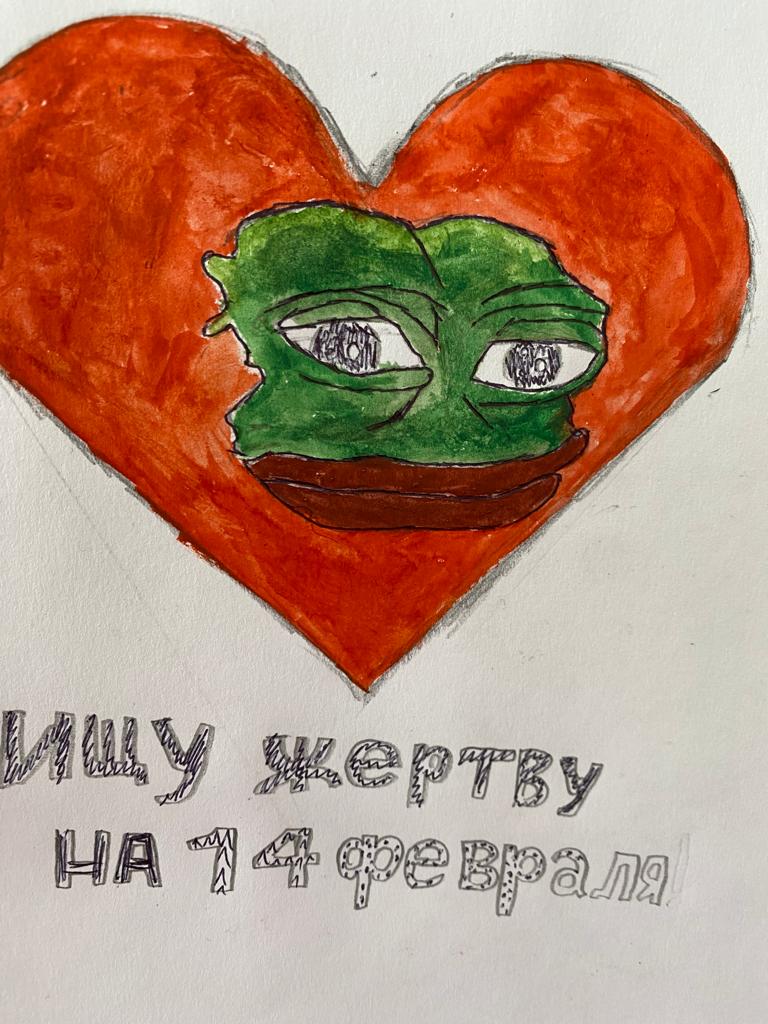 Ищу жертву
на 14 февраля!